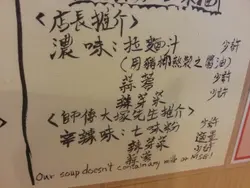 <店長推介>
濃味:拉麵汁 少許
(用豬油熬製之醬油)
蒜蓉 少許
辣芽菜
<師傅大塚先生推介>
辛辣味:七味粉 少許
辣芽菜 適量
蒜蓉 少許
Our soup doesn't contain any milk or MSG!